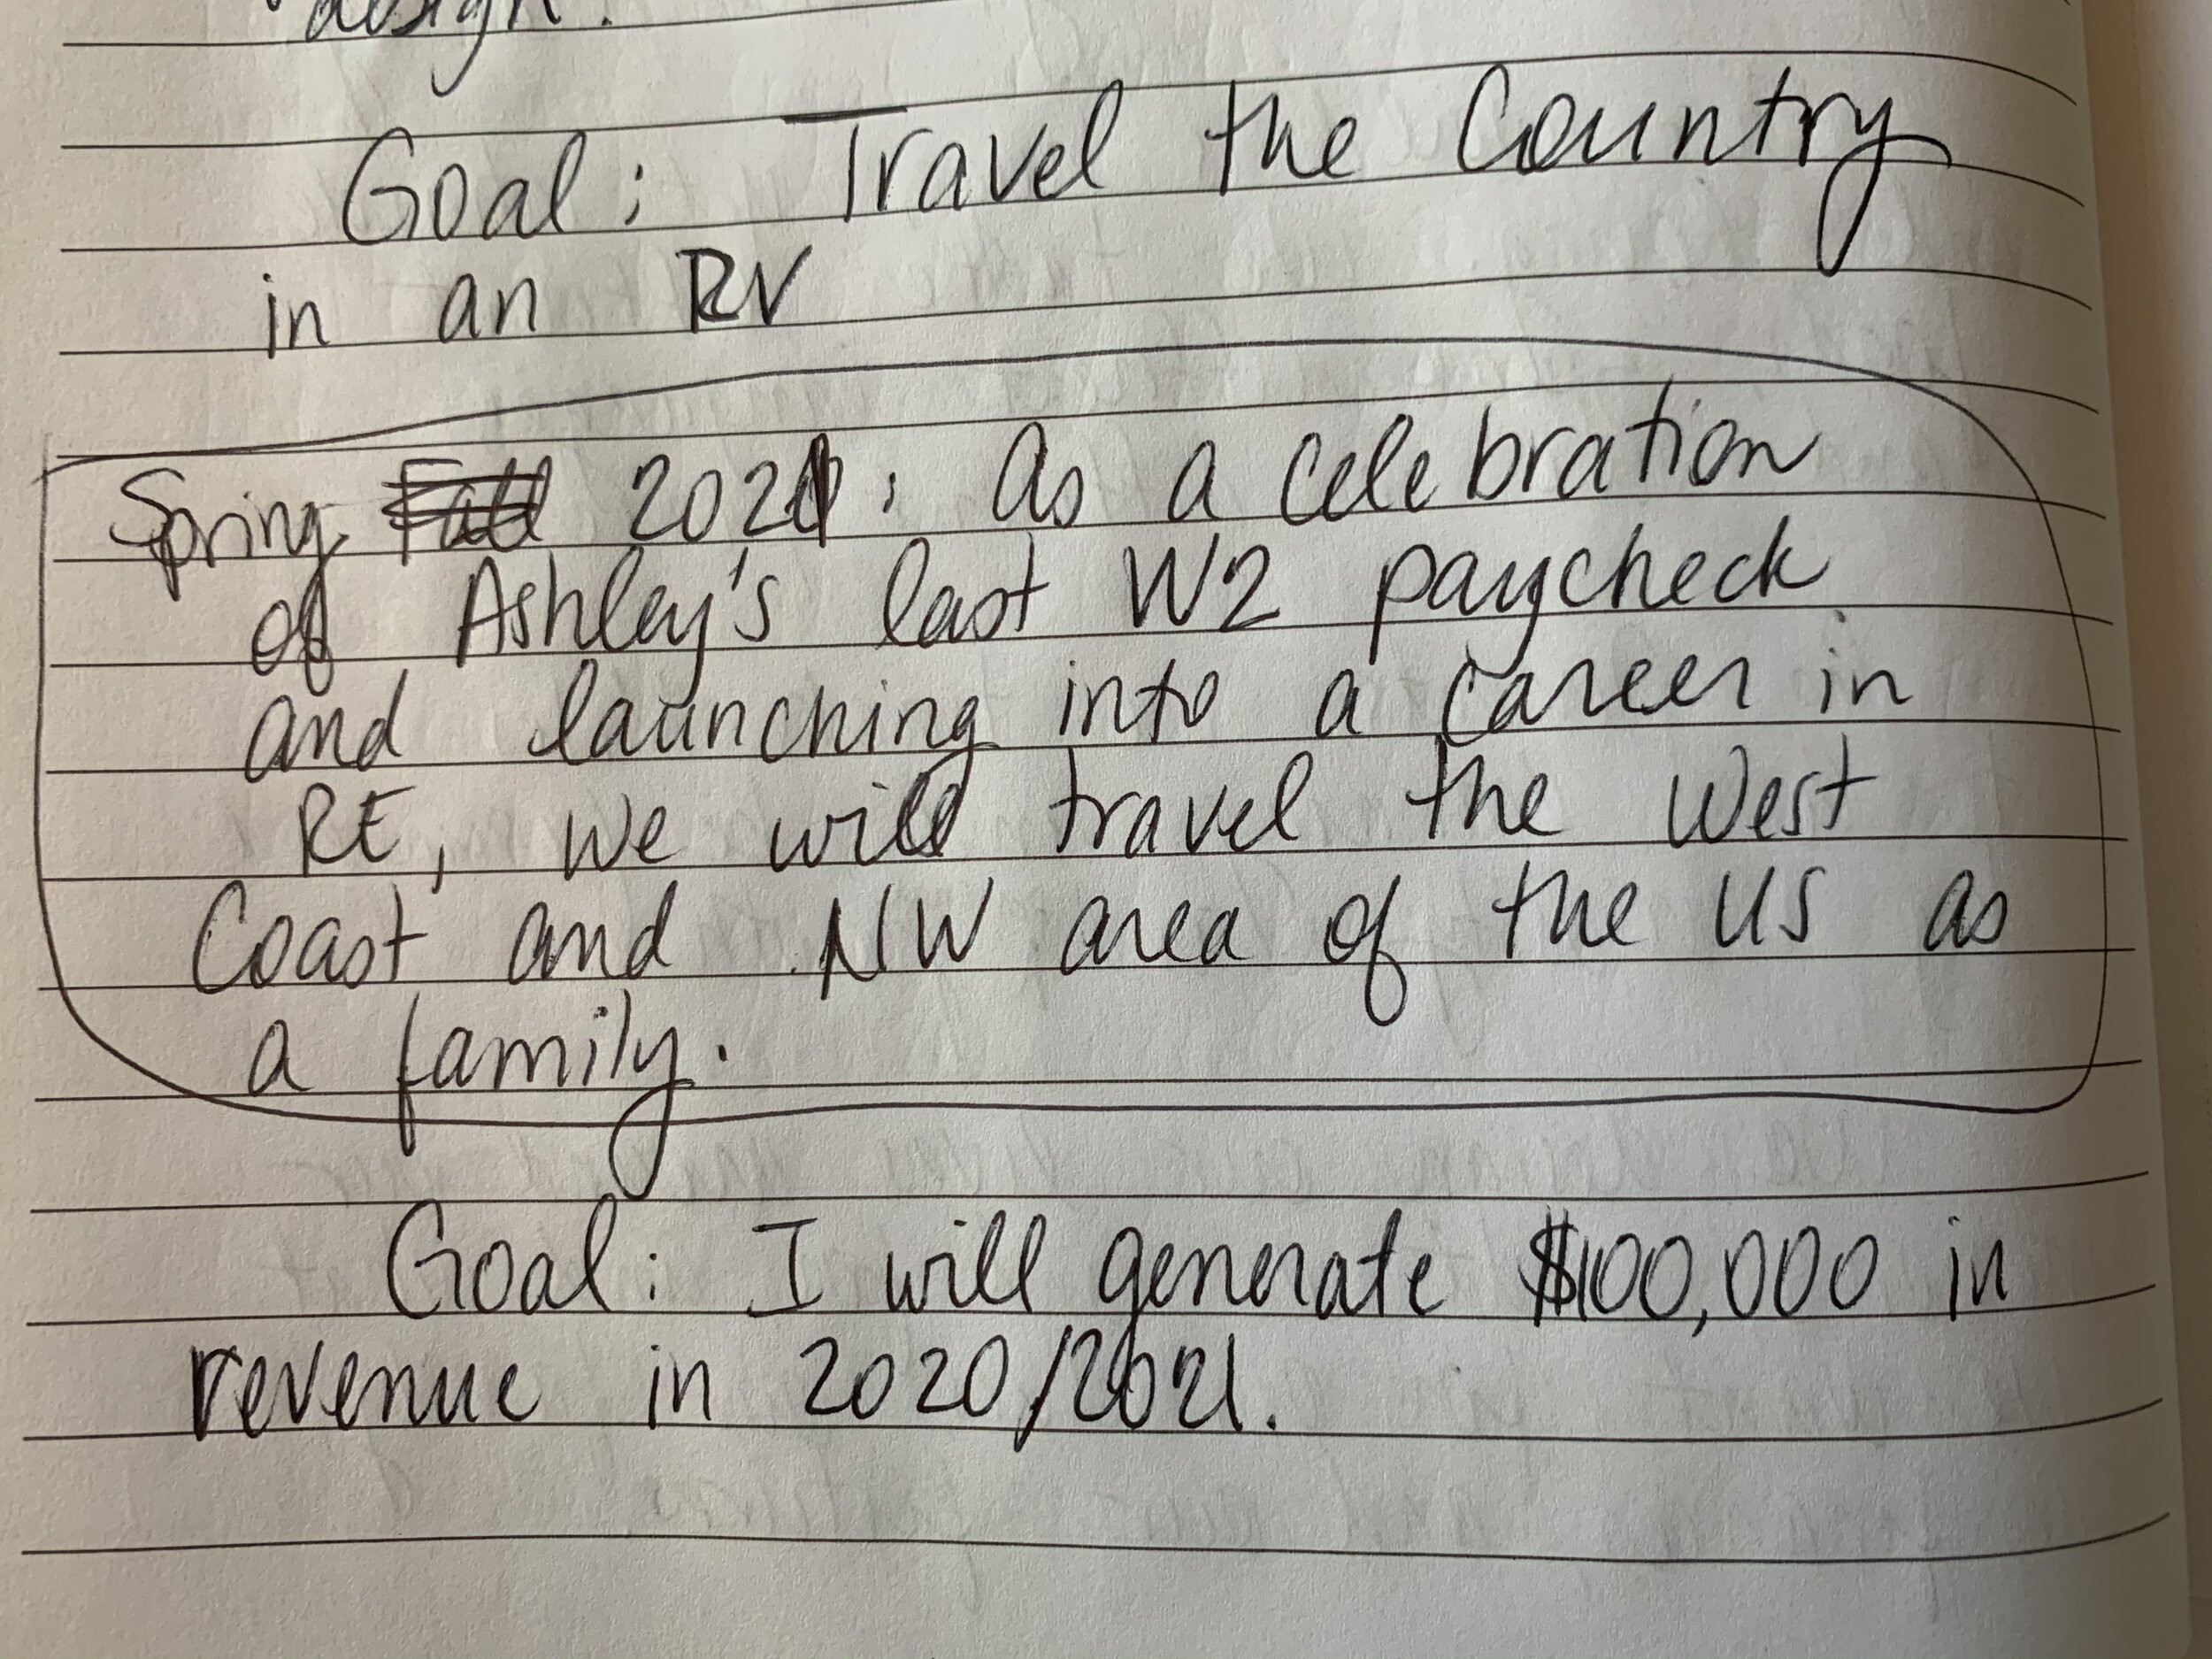 design.
Goal: Travel the Country
in an RV
Spring Fall 2021: As a celebration
of Ashley's last W2 paycheck
and launching into a career in
RE, we will travel the West
Coast and NW area of the US as
a family.
Goal: I will generate $100,000 in
revenue in 2020/2021.